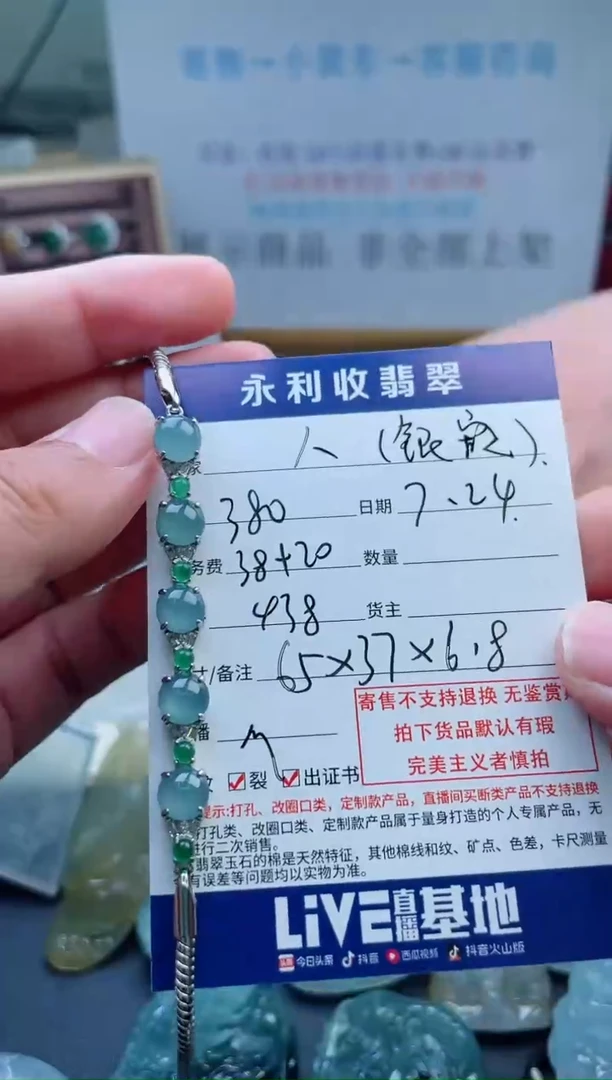 永利收翡翠
家 人(银嵌).
380 日期 7.24.
务费 38+20 数量
438 货主
寸/备注 65×37×6.8
播
寄售不支持退换 无鉴赏
拍下货品默认有瑕
完美主义者慎拍
裂 出证书
提示:打孔、改圈口类,定制款产品,直播间买断类产品不支持退换
打孔类、改圈口类、定制款产品属于量身打造的个人专属产品,无
进行二次销售。
翡翠玉石的棉是天然特征,其他棉线和纹、矿点、色差,卡尺测量
有误差等问题均以实物为准。
LiVE直播基地
今日头条 抖音 西瓜视频 抖音火山版